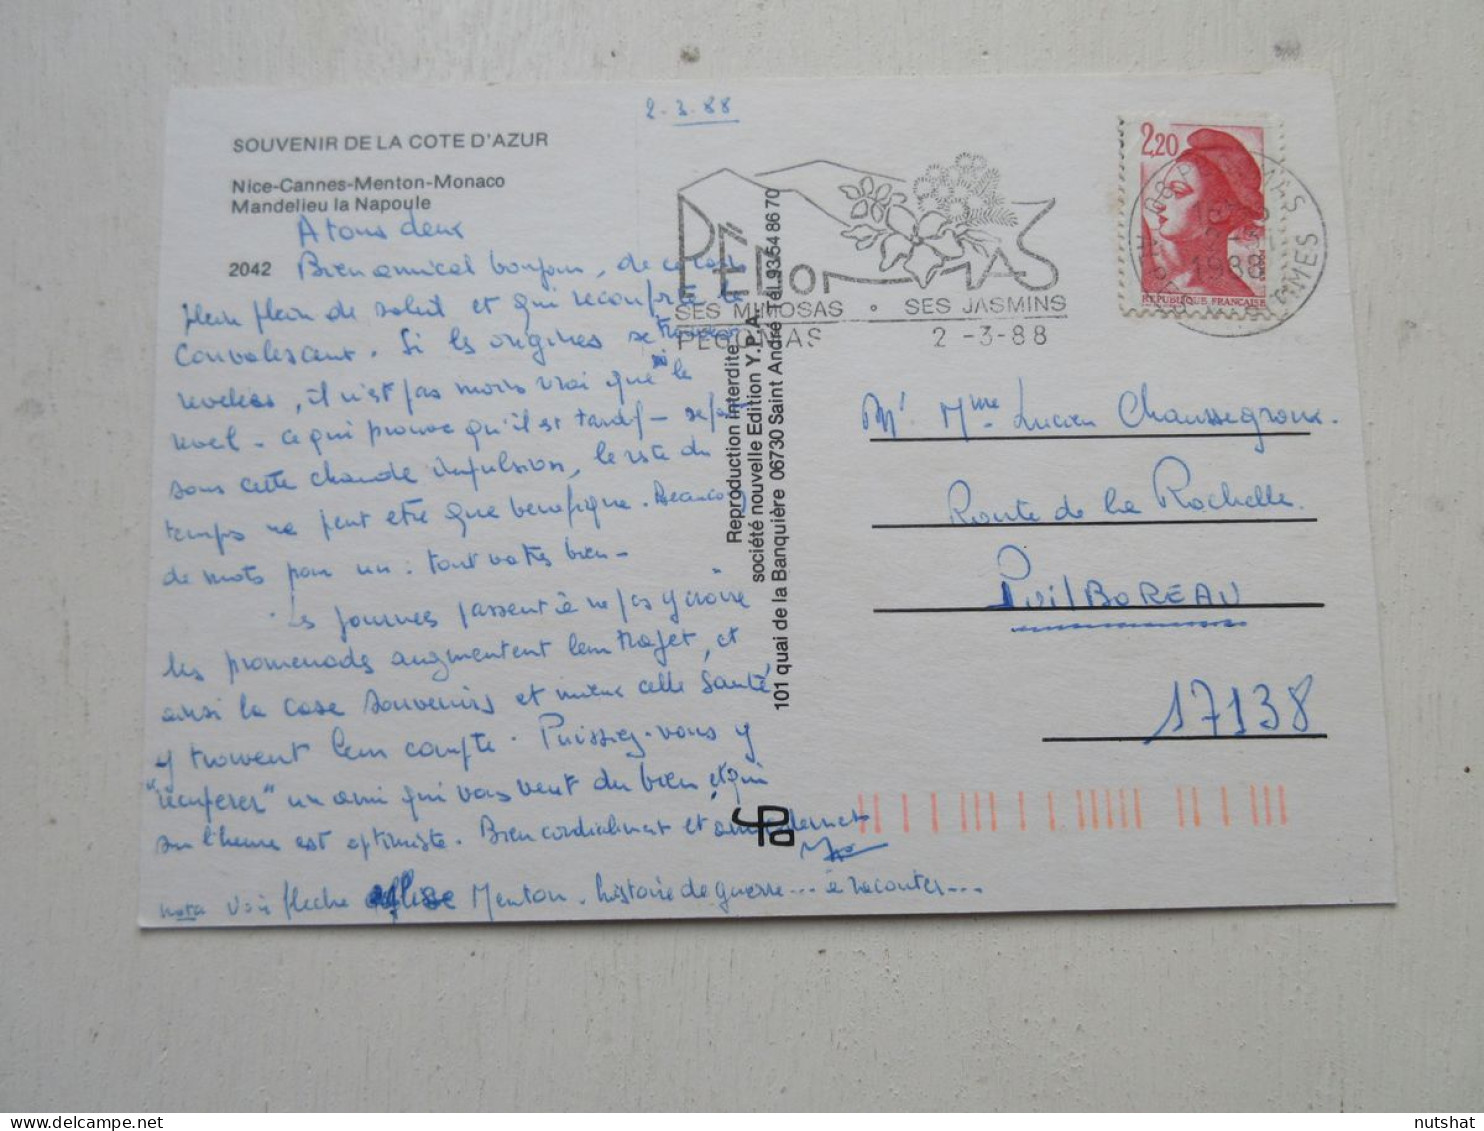 2-3-88
SOUVENIR DE LA COTE D'AZUR
Nice-Cannes-Menton-Monaco
Mandelieu la Napoule
2042
A tous deux
Bien amical bonjour, de ce
plein de soleil et qui
convalescent. Si les origines se
, il n'est pas moins vrai que le
reveil - ce qui prouve qu'il est tardif -
sous cette chaude impulsion, le reste du
temps ne peut etre que benefique. Beaucoup
de mots pour un : tout va très bien -
Les journées passent à ne pas y croire
les promenades augmentent leur trajet, et
ainsi la case souvenirs et mieux celle santé
y trouvent leur compte. Puissiez-vous y
"récupérer" un ami qui vous veut du bien et qui
sur l'heure est optimiste. Bien cordialement et
nota Voir fleche Menton. histoire de guerre... à raconter...
PÉGOMAS
SES MIMOSAS • SES JASMINS
PEGOMAS 2 -3-88
2,20
REPUBLIQUE FRANÇAISE
1988
Reproduction interdite
société nouvelle Edition Y.P.A.
101 quai de la Banquière 06730 Saint André - Tél.93/54 86 70
Mr Mme Lucien Chaussegroux.
Route de la Rochelle.
PuilBOREAU
17138
nutshat